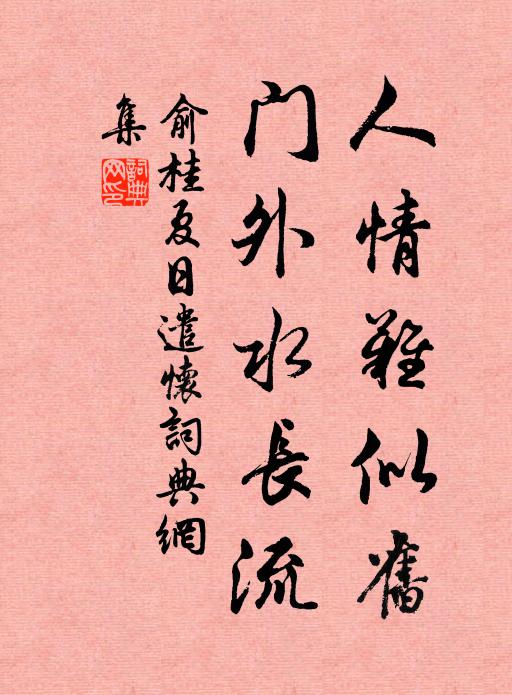 人情難似舊
門外水長流
俞桂夏日遣懷詞典網
集
詞典
网印